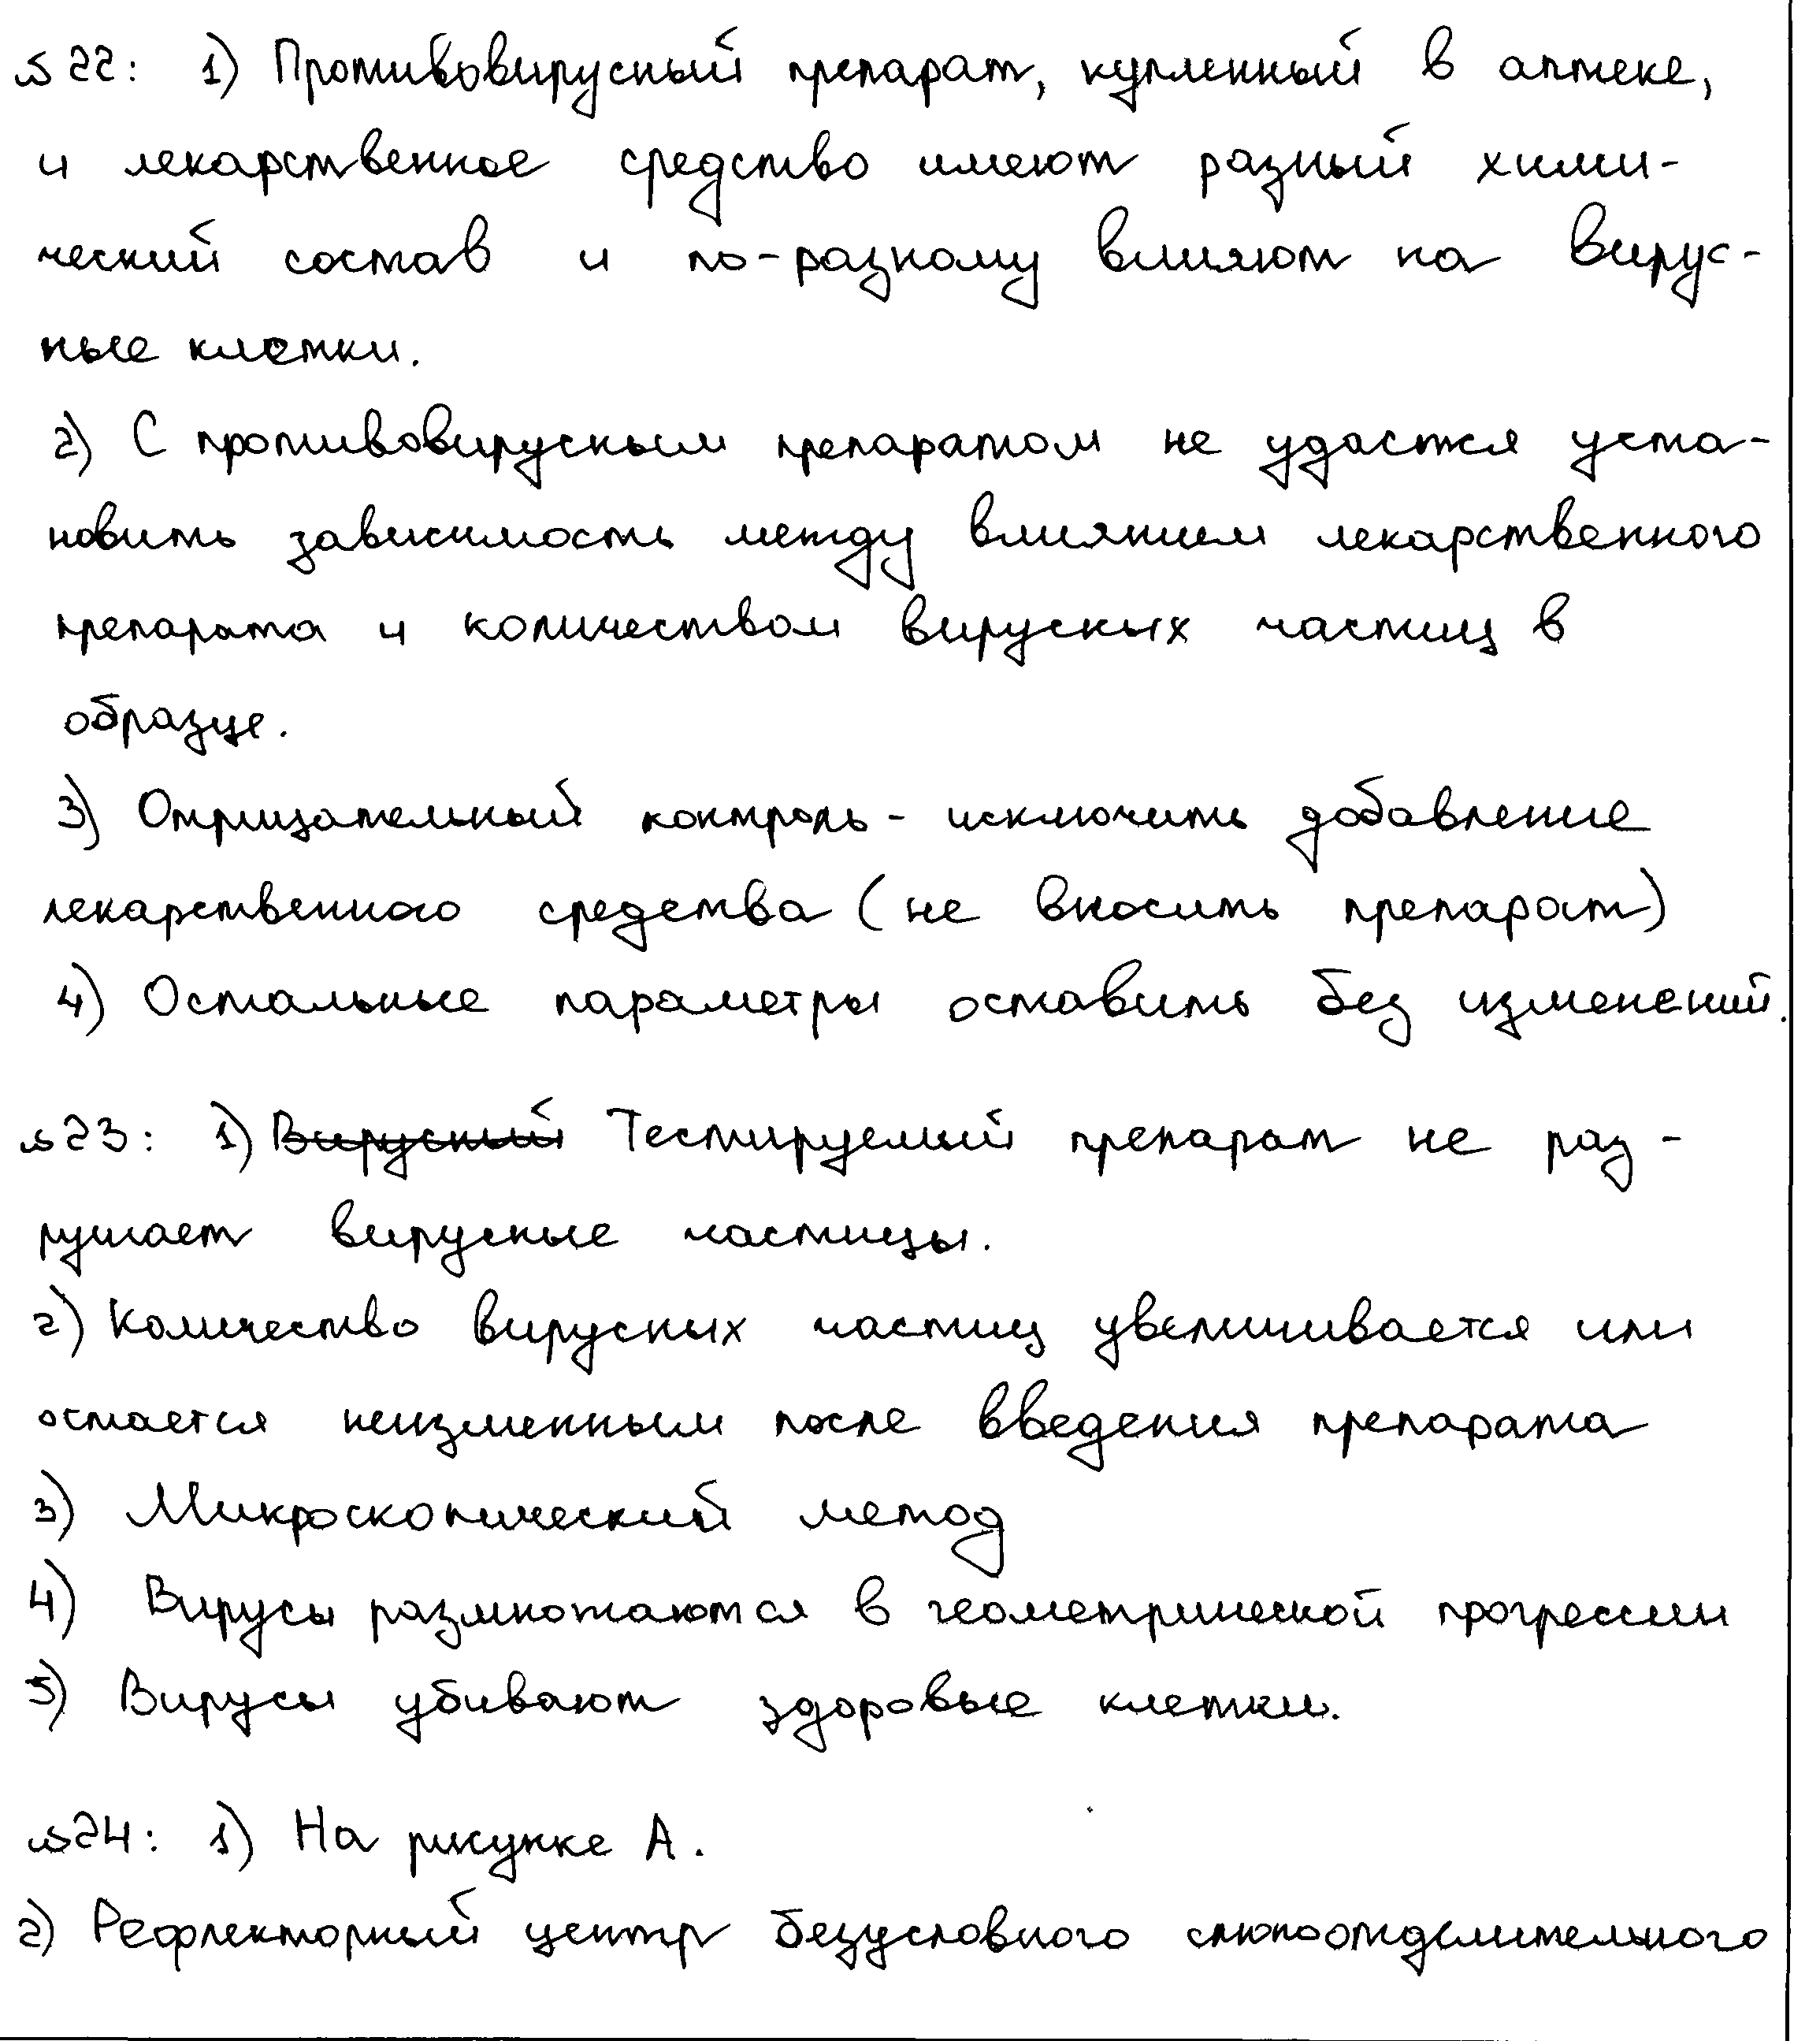 №22: 1) Противовирусный препарат, купленный в аптеке,
и лекарственное средство имеют разный хими-
ческий состав и по-разному влияют на вирус-
ные клетки.
2) С противовирусным препаратом не удастся уста-
новить зависимость между влиянием лекарственного
препарата и количеством вирусных частиц в
образце.
3) Отрицательный контроль - исключить добавление
лекарственного средства (не вносить препарат)
4) Остальные параметры оставить без изменений.
№23: 1) Вирусный Тестируемый препарат не раз-
рушает вирусные частицы.
2) Количество вирусных частиц увеличивается или
остается неизменным после введения препарата
3) Микроскопический метод
4) Вирусы размножаются в геометрической прогрессии
5) Вирусы убивают здоровые клетки.
№24: 1) На рисунке А.
2) Рефлекторный центр безусловного слюноотделительного